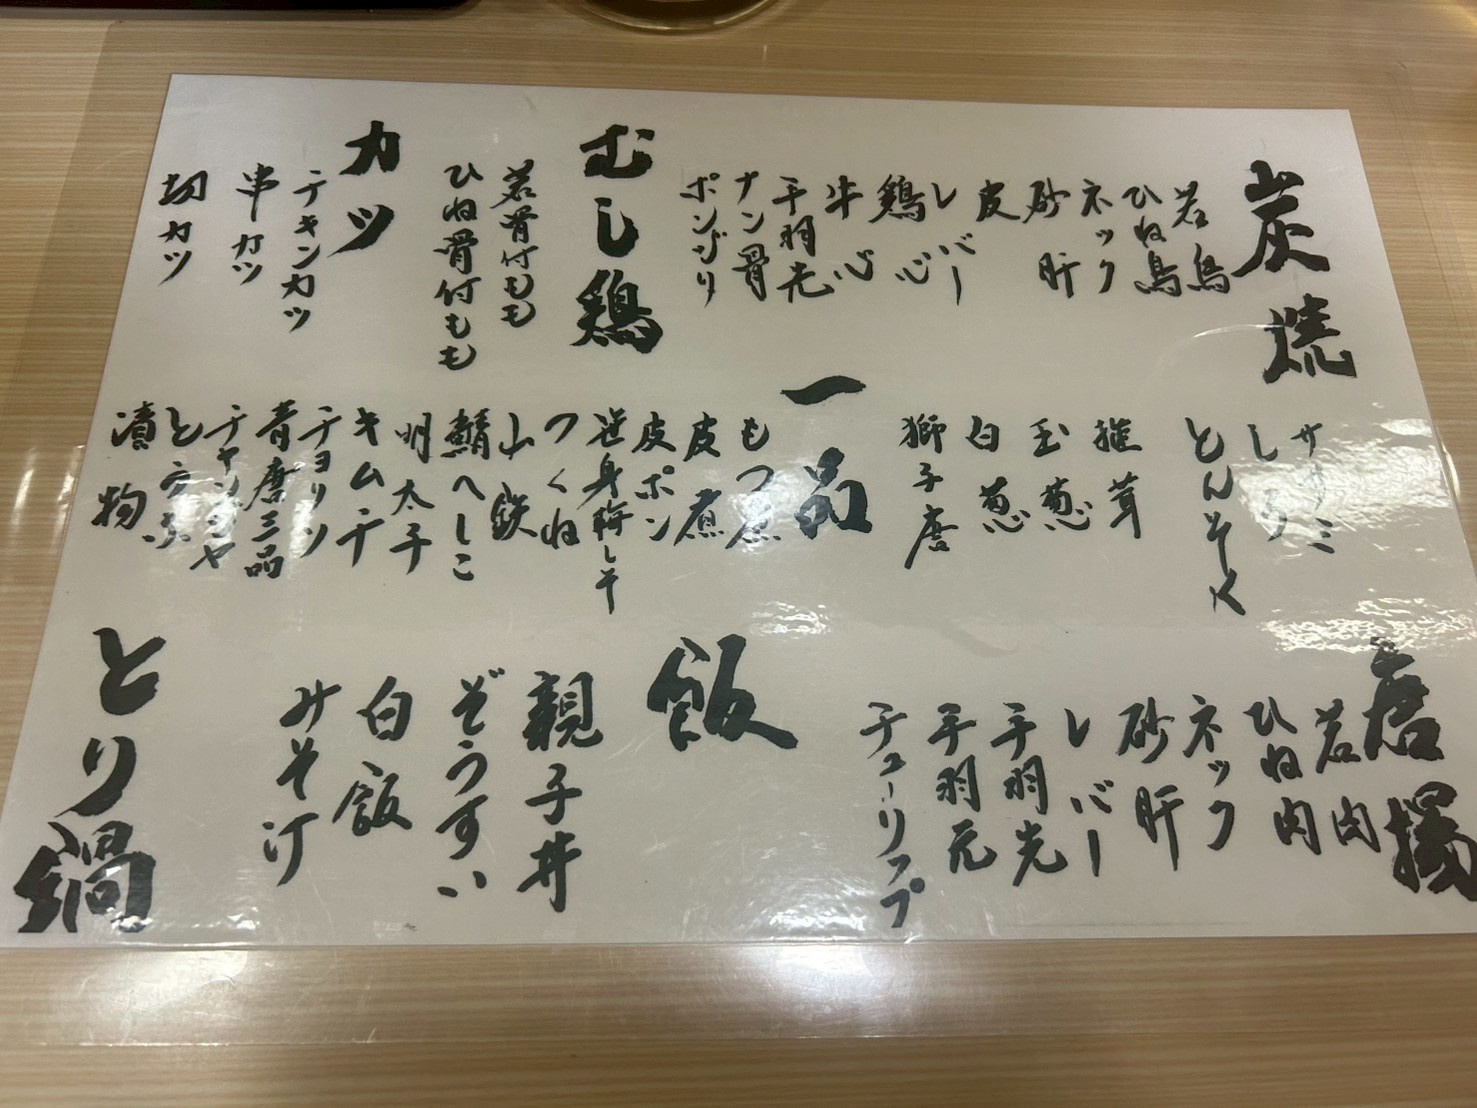 炭焼
若鳥
ひね鳥
ネック
砂肝
皮
レバー
鶏心
牛心
手羽先
ナン骨
ポンジリ
むし鶏
若骨付もも
ひね骨付もも
カツ
チキンカツ
串カツ
切カツ
ササミ
しそ
とんそく
椎茸
玉葱
白葱
獅子唐
一品
もつ煮
皮煮
皮ポン
笹身梅しそ
つくね
山鉄
鯖へしこ
明太子
キムチ
チョリソ
青唐三品
チャンジャ
とうふ
漬物
唐揚
若肉
ひね肉
ネック
砂肝
レバー
手羽先
手羽元
チューリップ
飯
親子丼
ぞうすい
白飯
みそ汁
とり鍋